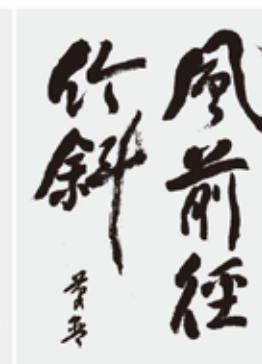 風前徑
竹斜